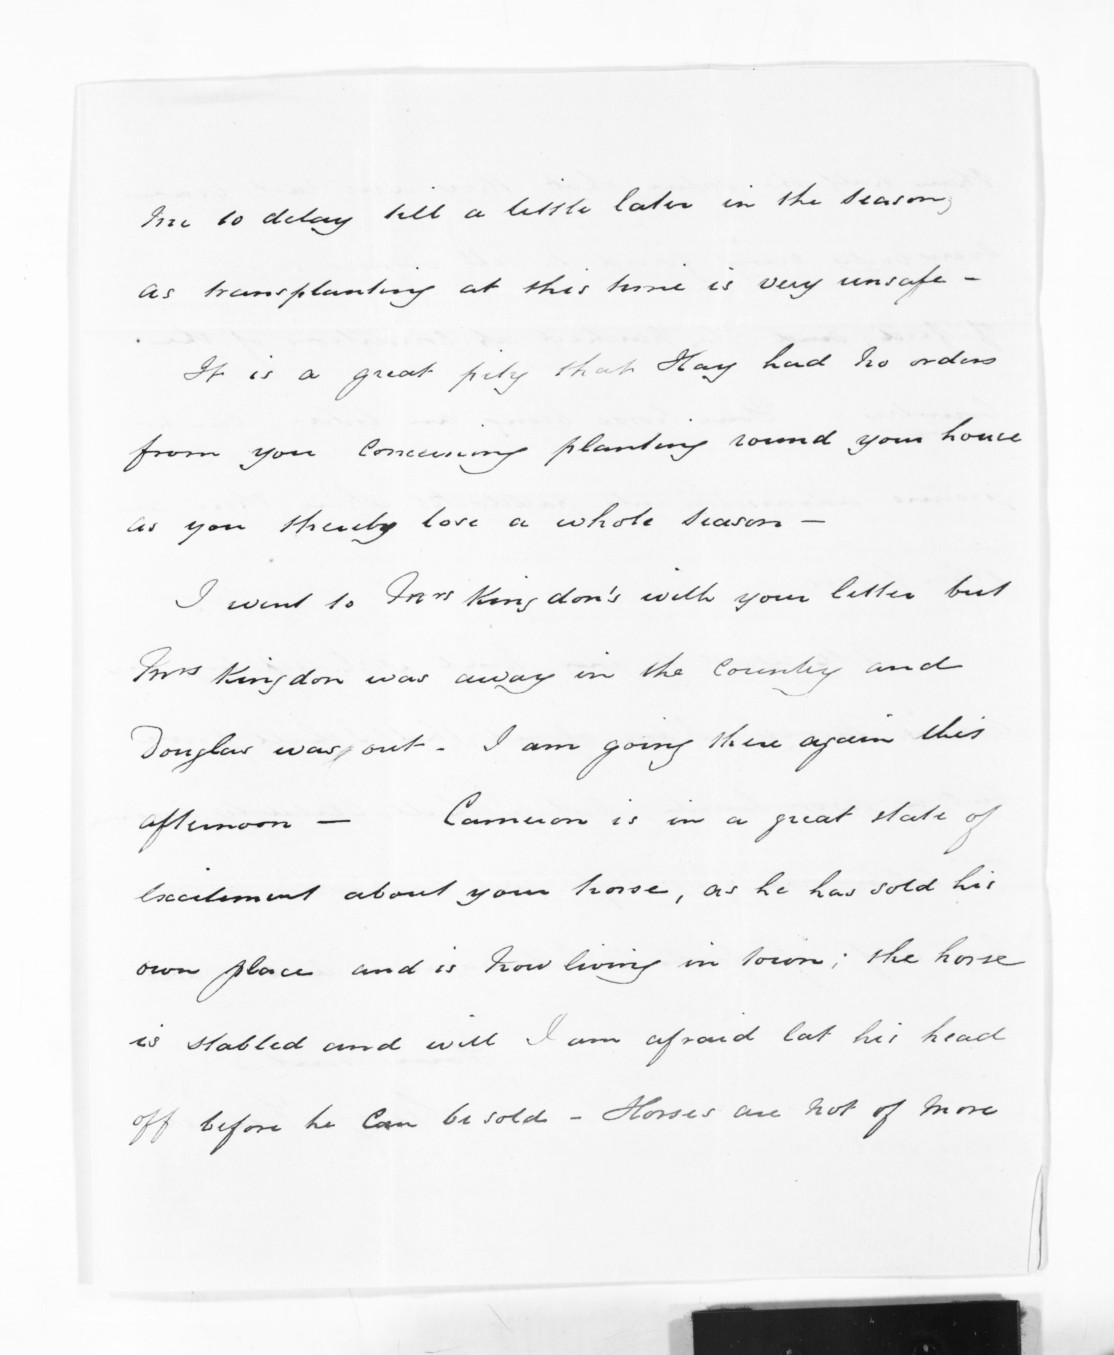 me to delay till a little later in the season,
as transplanting at this time is very unsafe –
It is a great pity that Hay had no orders
from you concerning planting round your house
as you thereby lose a whole season –
I went to Mrs Kingdon's with your letter but
Mrs Kingdon was away in the country and
Douglas was out - I am going there again this
afternoon — Cameron is in a great state of
excitement about your horse, as he has sold his
own place and is now living in town; the horse
is stabled and will I am afraid eat his head
off before he can be sold - Horses are not of more